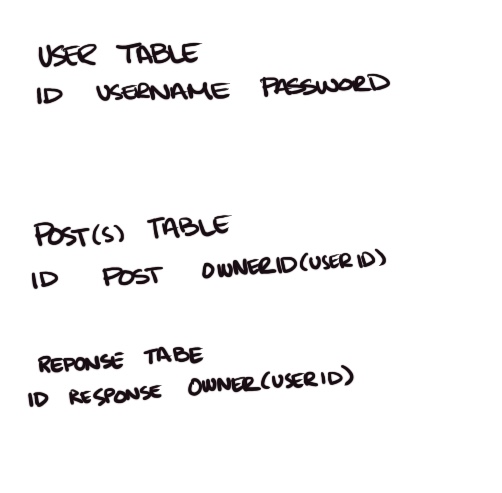 USER TABLE
ID USERNAME PASSWORD
POST(S) TABLE
ID POST OWNERID(USERID)
REPONSE TABE
ID RESPONSE OWNER(USERID)